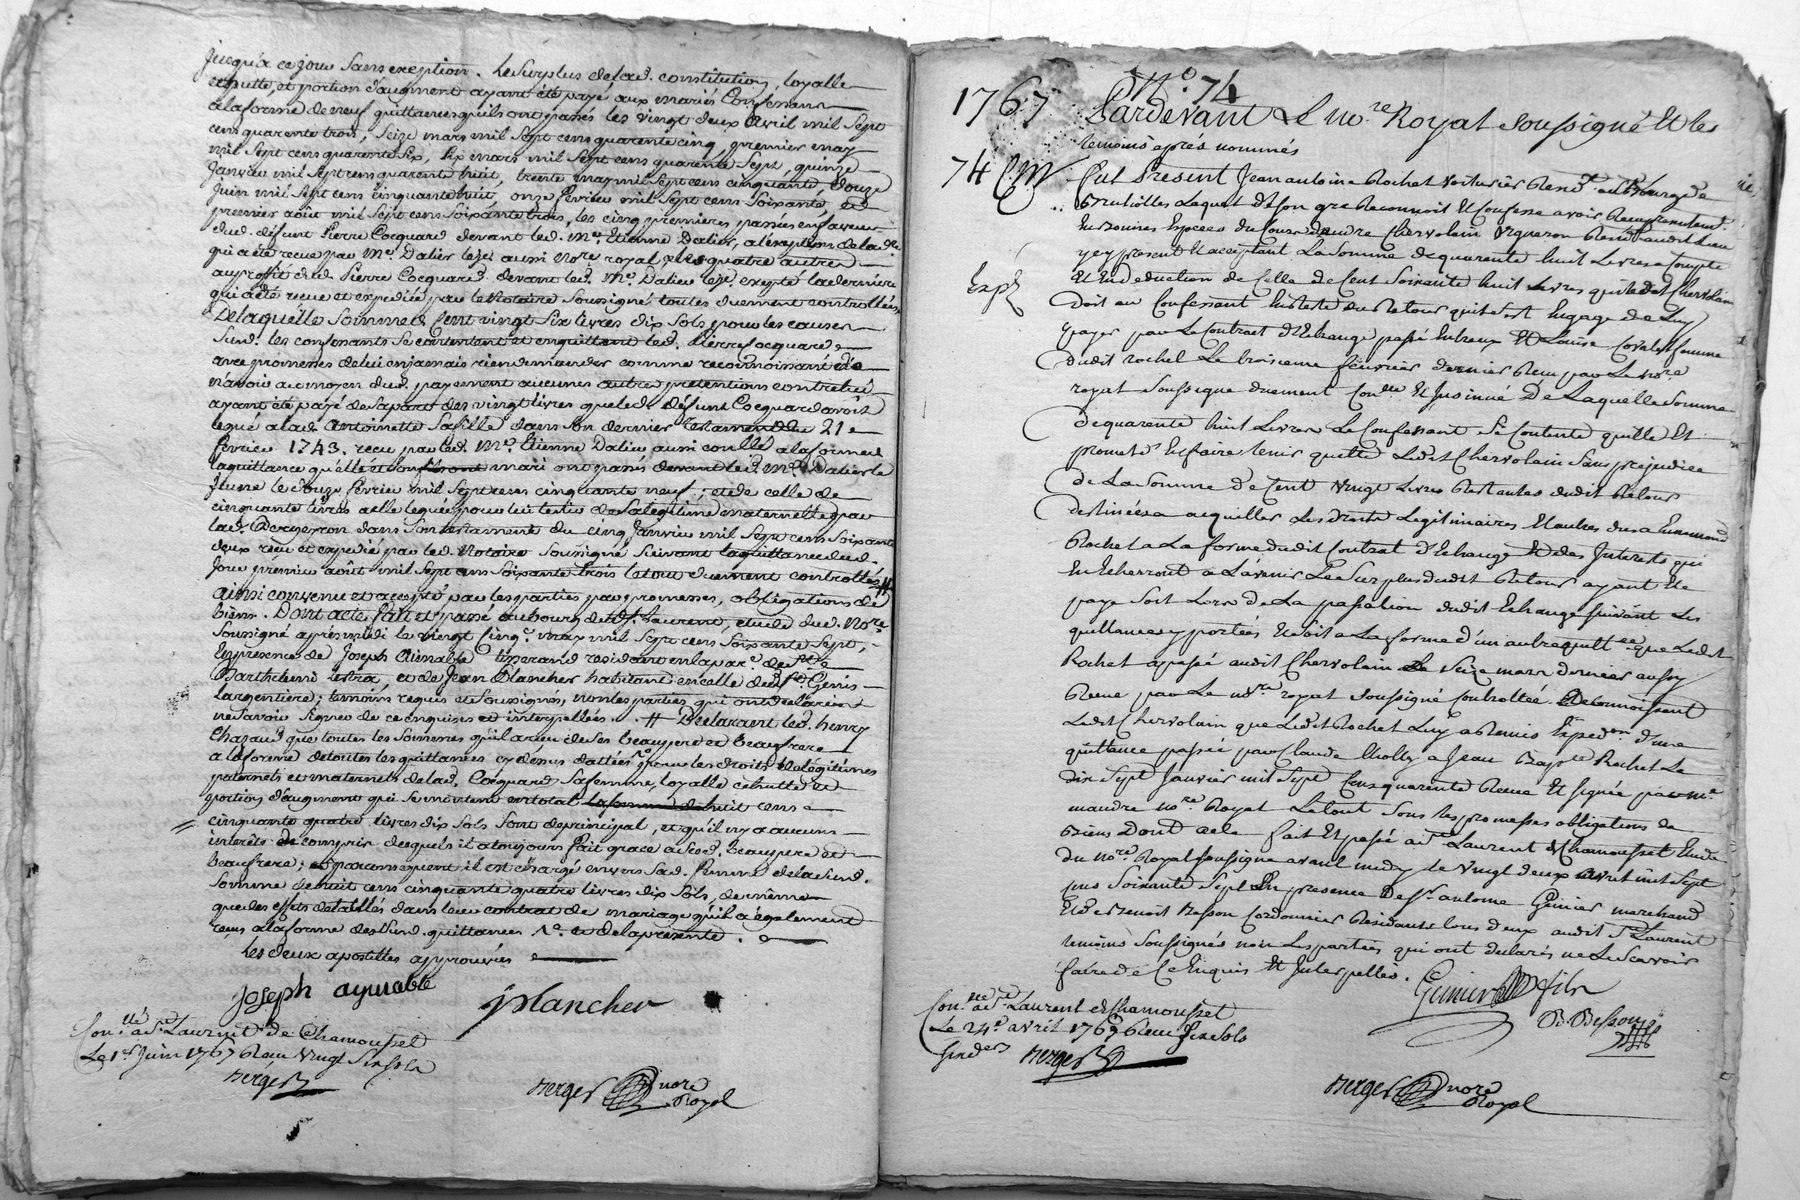 jusqu'à ce jour sans exception. le surplus de lad. constitution, loyalle
cahutte, et portion d'augment ayant été payé aux mariés Confessans
a la forme de neuf quittances qu'ils ont passés les vingt deux avril mil sept
cens quarente trois, seize mars mil sept cens quarente cinq, premier may
mil sept cens quarente six, six mars mil sept cens quarente sept, quinze
janvier mil sept cens quarente huit, trente may mil sept cens cinquante, douze
juin mil sept cens cinquante huit, onze février mil sept cens soixante et
premier août mil sept cens soixante trois, les cinq premieres passées en faveur
dud. défunt Pierre Cocquard devant led. Me. Etienne Dalier, a l'exception de la
qui a été recue par Me. Dalier le jeune aussi nore. royal et les quatre autres
au profit dud. Pierre Cocquard devant led. Me. Dalier lejne. excepté la derniere
qui a été recue et expediée par le notaire soussigné toutes duement controllées,
De laquelle somme de Cent vingt six livres dix sols pour les causes
susd. les confessants se contentent et en quittent led. Pierre Cocquard
avec promesses de lui en jamais rien demander comme reconnoissant
n'avoir au moyen dud. payement aucunes autres prétentions contre lui
ayant été payé de sa part des vingt livres que led. défunt Cocquard avoit
legué a lad. antoinette sa fille dans son dernier testament du 21
février 1743. recu par led. Me. Etienne Dalier aussi conllé a la forme de
la quittance qu'elle et mari ont passés devant led. Me. Dalier le
jeune le douze février mil sept cens cinquante neuf; et de celle de
cinquante livres a elle leguée pour lui tenir de sa légitime maternelle par
lad. dans son testament du cinq janvier mil sept cens soixante
deux recu et expedié par led. Notaire soussigné suivant la quittance dud.
jour premier août mil sept cens soixante trois le tout duement controllés #
ainsi convenu et accepté par les parties par promesses, obligations de
biens. Dont acte fait et passé au bourg dudt. St. Laurent, etude dud. Nore.
soussigné après midi le vingt cinq. may mil sept cens soixante sept,
en présence de Joseph Aimable tisserand residant en la par. de St.
Barthelemi Lestra, et de Jean Plancher habitant en celle de St. Genis
Largentiere; temoins requis et soussignés, non les parties qui ont déclaré
ne savoir signer de ce enquises et interpellées. # Declarant led. henry
Chazaud que toutes les sommes qu'il a recu de ses beaupere et beaufrere
a la forme de toutes les quittances cy dessus dattées pour les droits et légitimes
paternels et maternels de lad. Cocquard sa femme, loyalle cahutte et
portion d'augment qui se montent en total la somme de huit cens
cinquante quatre livres dix sols sont de principal, et qu'il n'y a aucuns
intérêts de compris desquels il a toujours fait grace ausd. beaupere et
beaufrere; et par consequent il est chargé envers sad. femme de lad.
somme de huit cens cinquante quatre livres dix sols, de même
que des effets detaillés dans leur contrat de mariage qu'il a également
recus a la forme desd. quittances et de la présente.
les deux apostilles approuvées
Joseph aymable
jplancher
Con.llé a St. Laurent de Chamousset
Le 1er Juin 1767 Recu Vingt six sols
Berger
Berger nore Royal
1767
No. 74
Pardevant Le no.re Royal soussigné Et les
temoins après nommés
74 C.M.
Fut Présent Jean antoine Rochet voiturier Rend.t au Bourg de
Brullolles Lequel de son gré Reconnoit Et Confesse avoir Reçu
En bonnes Especes du Cours d'andre Chervolain vigneron Rend.t audit Lieu
y cy present Et acceptant La somme de quarente huit Livres a Compte
Expé
Et En deduction de Celle de Cent soixante huit Livres que ledit Chervolain
doit au Confessant En Reste du Retour qu'il s'est Engagé de Luy
payer par Le Contract d'Echange passé Entr'eux Et Louise femme
dudit rochet Le troisieme feuvrier dernier Recu par Le nore.
royal soussigné duement Conllé Et Insinué De Laquelle somme
de quarente huit Livres Le Confessant Se Contente quitte Et
promet En faire tenir quitte Ledit Chervolain sans prejudice
de La somme de Cent vingt Livres Restantes dudit Retour
destinées a acquitter Les droits Legitimaires Et autres dus a Ennemond
Rochet a La forme dudit Contrat d'Echange Et des Interets qui
En Echerront a L'avenir Le surplus dudit Retour ayant Eté
payé soit Lors de La passation dudit Echange suivant Les
quittances y portées Et soit a La forme d'un autre quitt.ce que Ledit
Rochet a passé audit Chervolain Le seize mars dernier aussy
Recue par Le nore royal soussigné Controllée. Reconnoissant
Ledit Chervolain que Ledit Rochet Luy a Remis Expedon. d'une
quittance passée par Claude Molly a Jean Bapte. Rochet Le
dix sept Janvier mil sept Cens quarente Recue Et signée par Me.
maudre nore Royal Le tout sous Les promesses obligations de
Biens Dont acte fait Et passé a St. Laurent de Chamousset Etude
du nore. Royal soussigné avant midy le vingt deux avril mil sept
cens soixante sept En presence De sr. antoine Génier marchand
Et de Benoit Besson Cordonnier Residants tous deux audit St. Laurent
temoins soussignés non Les parties qui ont declarés ne Le scavoir
faire de Ce Enquis Et Interpellés.
Genier fils
B. Besson
Con.llé a St. Laurent de Chamousset
Le 24e. avril 1767 Recu Six sols
Berger
Berger nore Royal